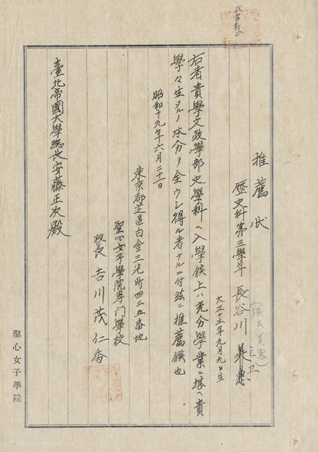 推薦狀
歷史科第三學年 長谷川美惠
大正十五年九月九日生
右者貴學文政學部史學科ヘ入學候上ハ充分學業ニ堪ヘ貴
學々生タルノ本分ヲ全ウシ得ル者ナルニ付茲ニ推薦候也
昭和十九年六月二十一日
東京都芝區白金三光町四二五番地
聖心女子學院專門學校
校長 吉川茂仁香
臺北帝國大學總長安藤正次殿
聖心女子學院